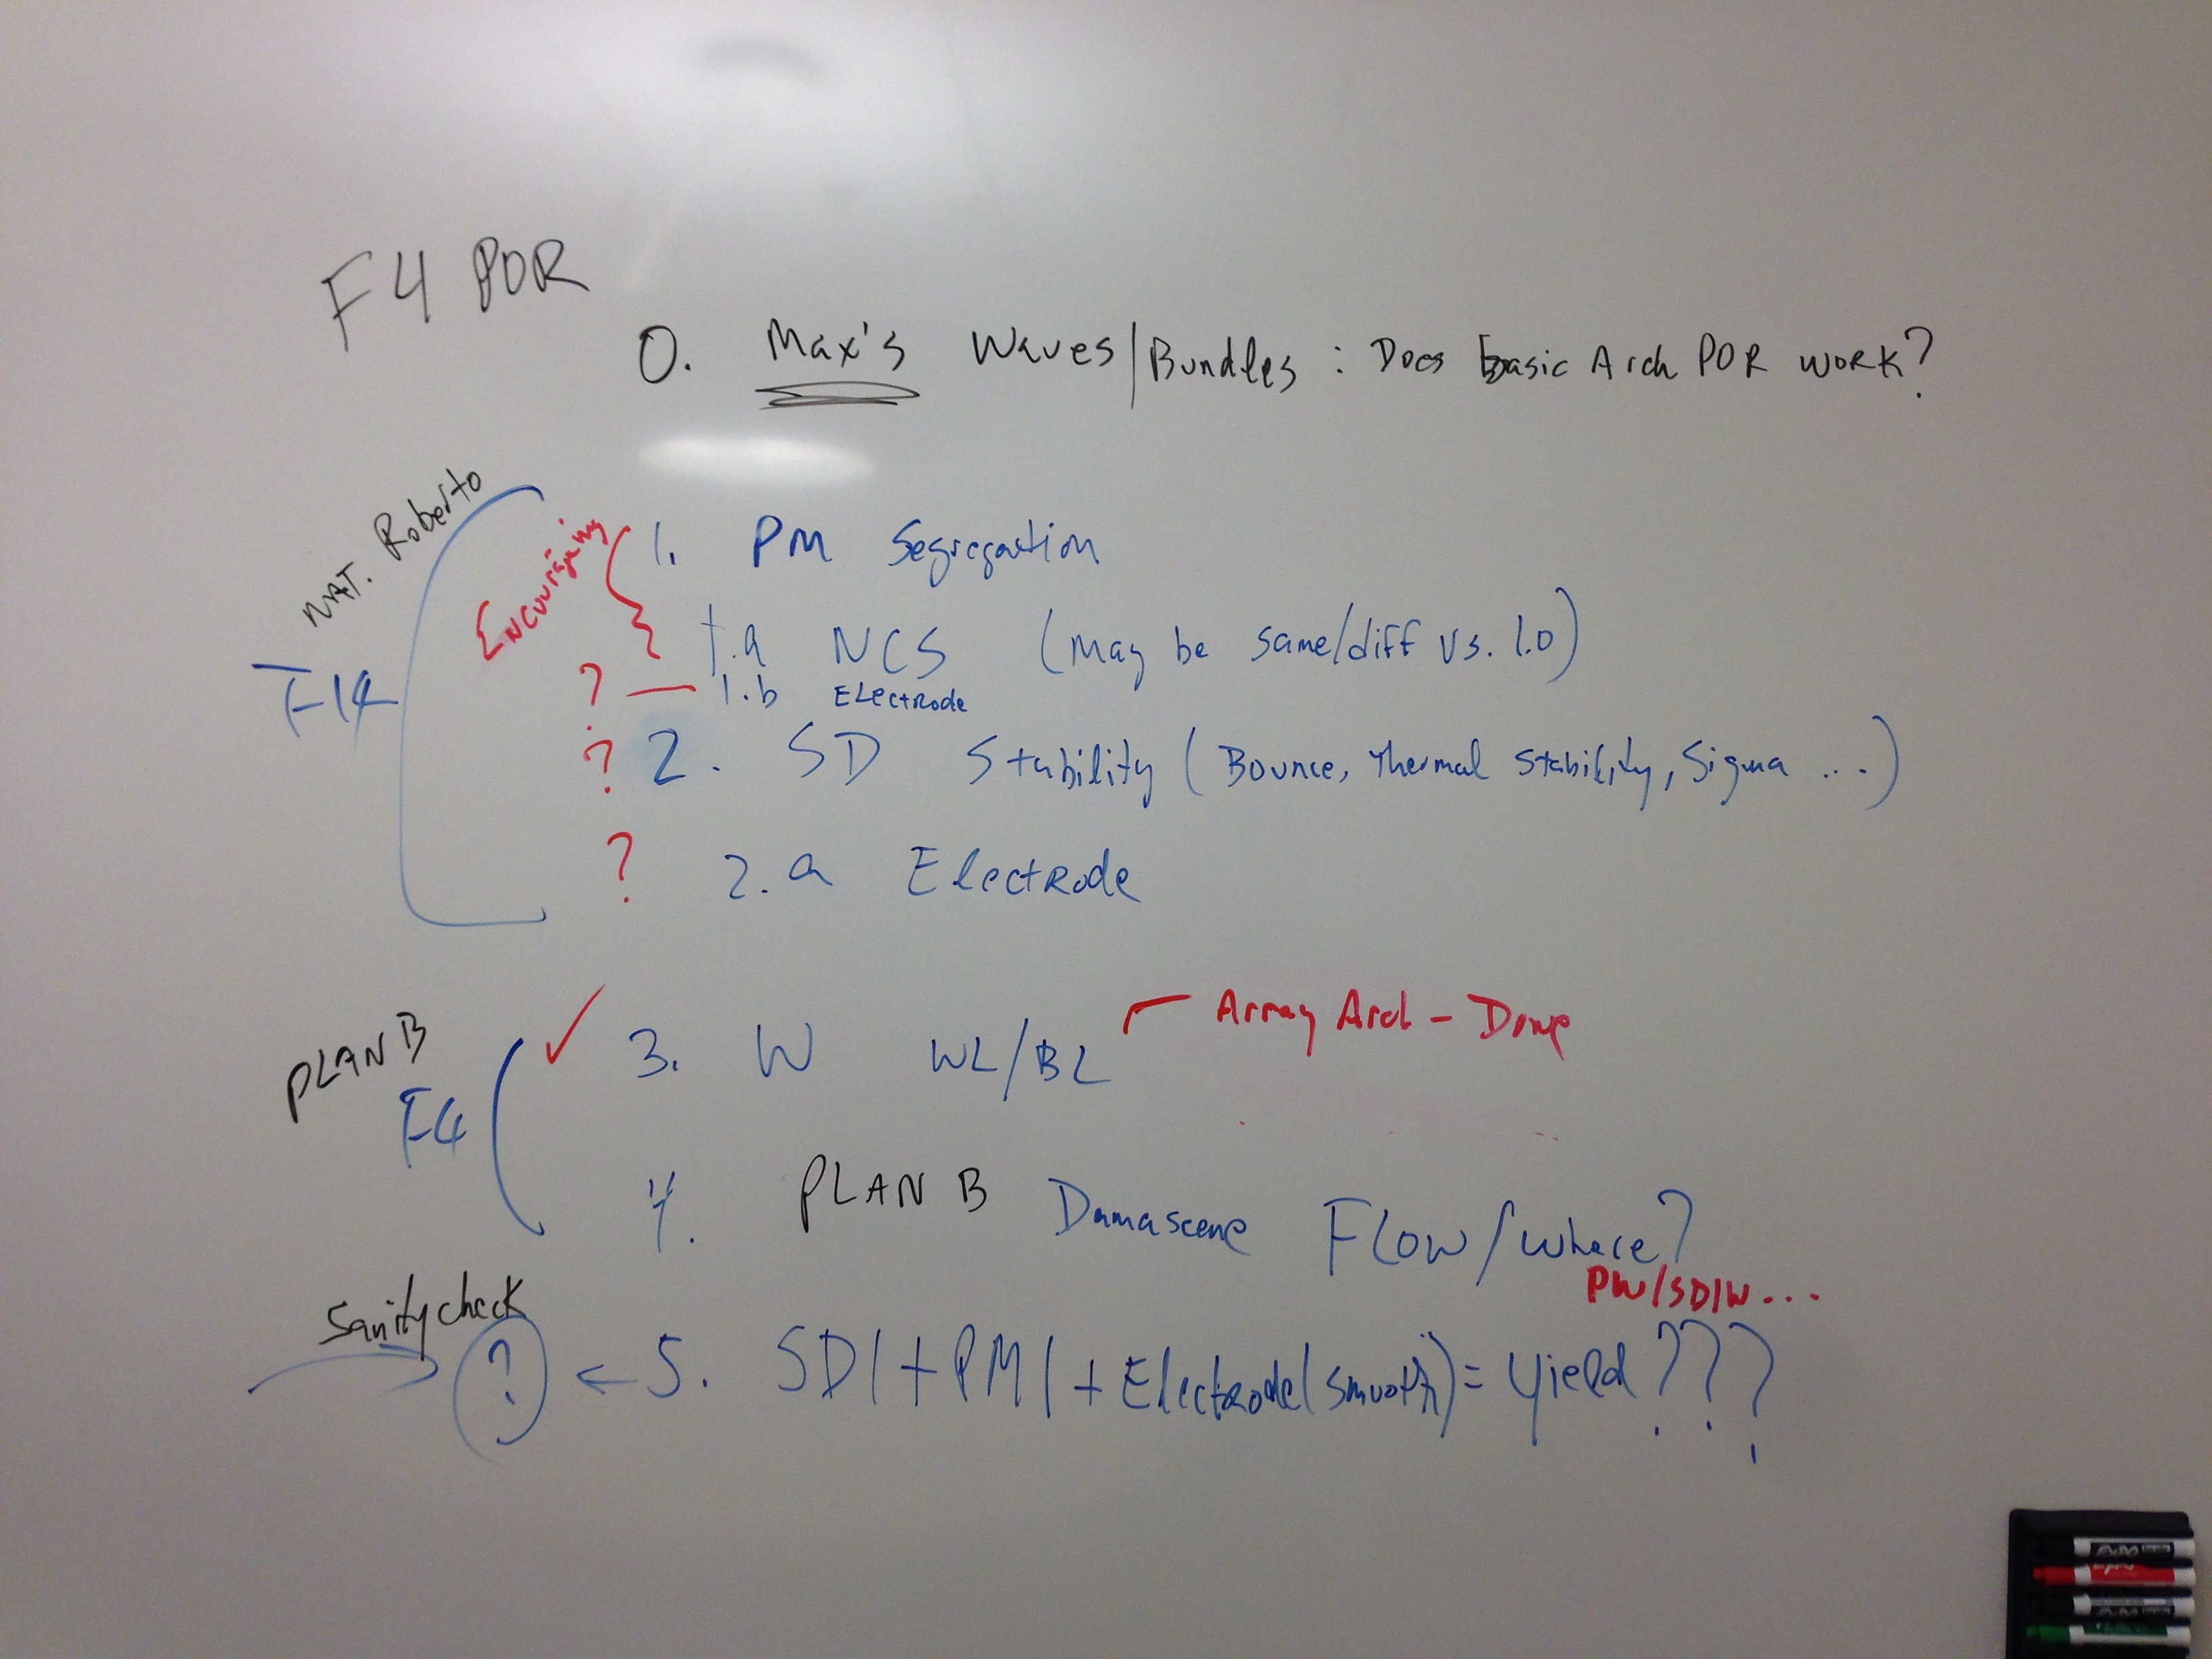 F4 POR
0. Max's Waves/Bundles : Does basic Arch POR work?
MAT. Roberto
Encouraging
1. PM Segregation
1.a NCS (may be same/diff vs. 1.0)
F14
? — 1.b Electrode
? 2. SD Stability (Bounce, Thermal Stability, Sigma ...)
? 2.a Electrode
Array Arch - Done
PLAN B
✓ 3. W WL/BL
F4
4. PLAN B Damascene Flow/where?
PW/SD/W...
Sanity check
? ← 5. SD1 + PM1 + Electrode (smooth) = Yield ???
EXPO
EXPO
EXPO